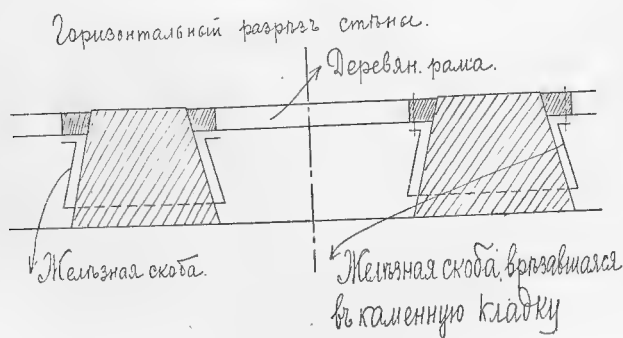 Горизонтальный разрѣзъ стѣны.
Деревян. рама.
Желѣзная скоба.
Желѣзная скоба, врѣзавшаяся
въ каменную кладку